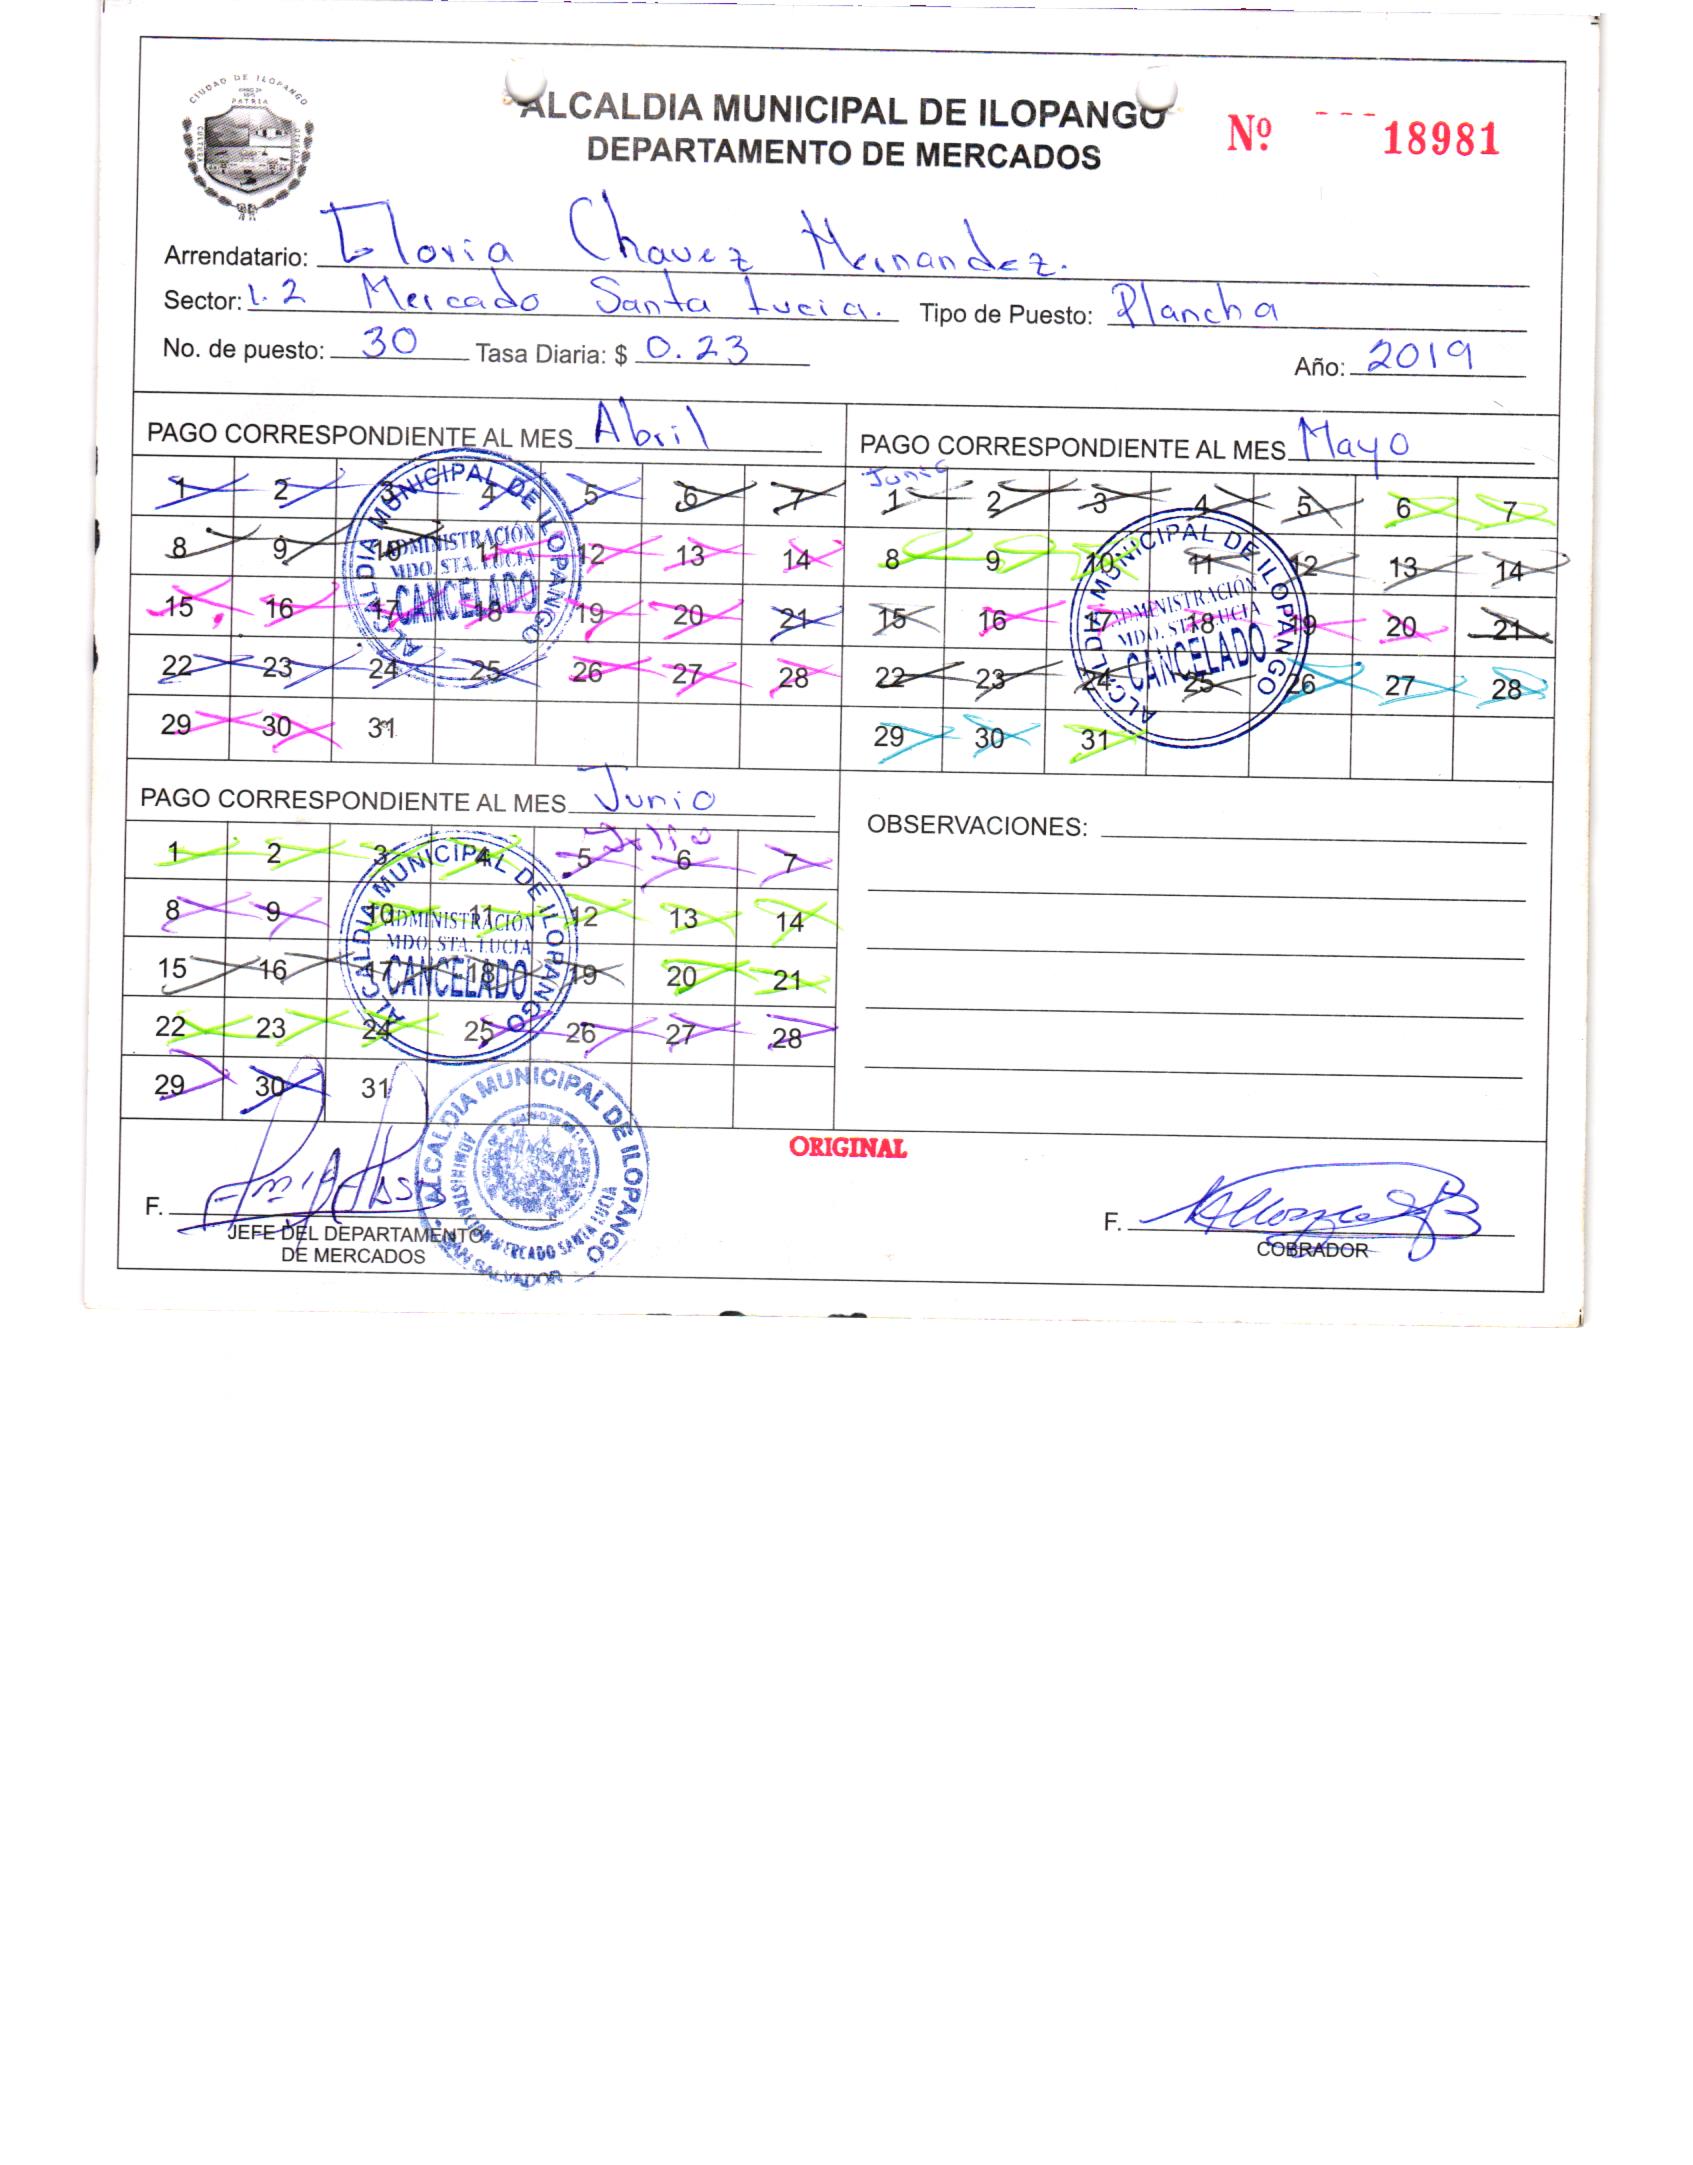 CIUDAD DE ILOPANGO
PATRIA
CULTURA
ALCALDIA MUNICIPAL DE ILOPANGO
DEPARTAMENTO DE MERCADOS
Nº 18981
Arrendatario: Gloria Chavez Hernandez.
Sector: 1.2 Mercado Santa Lucia. Tipo de Puesto: Plancha
No. de puesto: 30 Tasa Diaria: $ 0.23 Año: 2019
PAGO CORRESPONDIENTE AL MES Abril
1 2 3 4 5 6 7
8 9 10 11 12 13 14
15 16 17 18 19 20 21
22 23 24 25 26 27 28
29 30 31
ALCALDIA MUNICIPAL DE ILOPANGO
ADMINISTRACIÓN
MDO. STA. LUCIA
CANCELADO
PAGO CORRESPONDIENTE AL MES Mayo
Junio
1 2 3 4 5 6 7
8 9 10 11 12 13 14
15 16 17 18 19 20 21
22 23 24 25 26 27 28
29 30 31
ALCALDIA MUNICIPAL DE ILOPANGO
ADMINISTRACIÓN
MDO. STA. LUCIA
CANCELADO
PAGO CORRESPONDIENTE AL MES Junio
Julio
1 2 3 4 5 6 7
8 9 10 11 12 13 14
15 16 17 18 19 20 21
22 23 24 25 26 27 28
29 30 31
ALCALDIA MUNICIPAL DE ILOPANGO
ADMINISTRACIÓN
MDO. STA. LUCIA
CANCELADO
OBSERVACIONES:
ORIGINAL
F.
JEFE DEL DEPARTAMENTO
DE MERCADOS
ALCALDIA MUNICIPAL DE ILOPANGO
ADMINISTRACION MERCADO SANTA LUCIA
SAN SALVADOR
F.
COBRADOR